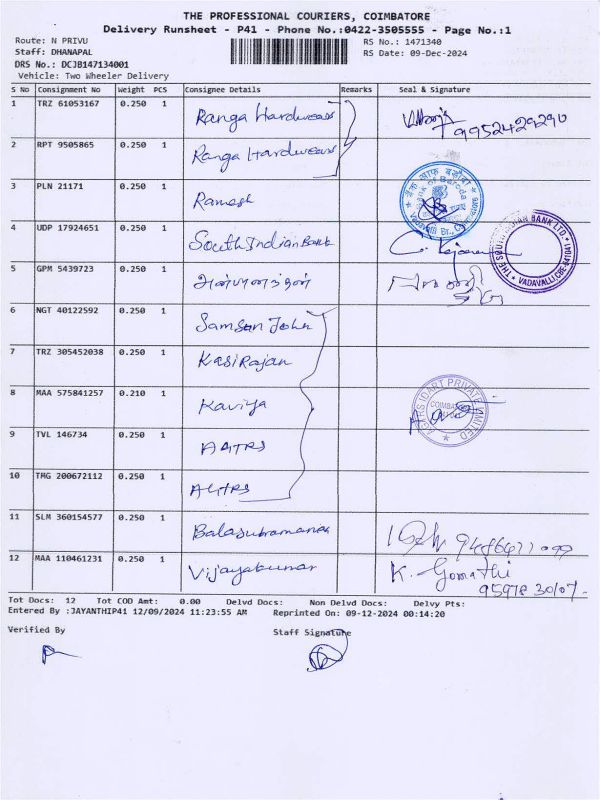 THE PROFESSIONAL COURIERS, COIMBATORE
Delivery Runsheet - P41 - Phone No.:0422-3505555 - Page No.:1
Route: N PRIVU RS No.: 1471340
Staff: DHANAPAL RS Date: 09-Dec-2024
DRS No.: DCJB147134001
Vehicle: Two Wheeler Delivery
S No Consignment No Weight PCS Consignee Details Remarks Seal & Signature
1 TRZ 61053167 0.250 1 Ranga Hardwears 9952429290
2 RPT 9505865 0.250 1 Ranga Hardwears
3 PLN 21171 0.250 1 Ramesh
बैंक ऑफ बड़ौदा
Bank of Baroda
4 UDP 17924651 0.250 1 South Indian Bank
THE SOUTH INDIAN BANK LTD.
5 GPM 5439723 0.250 1
6 NGT 40122592 0.250 1 Samson John
7 TRZ 305452038 0.250 1 KasiRajan
8 MAA 575841257 0.210 1 Kaviya
PRIVATE LIMITED
9 TVL 146734 0.250 1
10 TMG 200672112 0.250 1
11 SLM 360154577 0.250 1
12 MAA 110461231 0.250 1 Vijayakumar K. Gomathi
95978 30107
Tot Docs: 12 Tot COD Amt: 0.00 Delvd Docs: Non Delvd Docs: Delvy Pts:
Entered By :JAYANTHIP41 12/09/2024 11:23:55 AM Reprinted On: 09-12-2024 00:14:20
Verified By Staff Signature